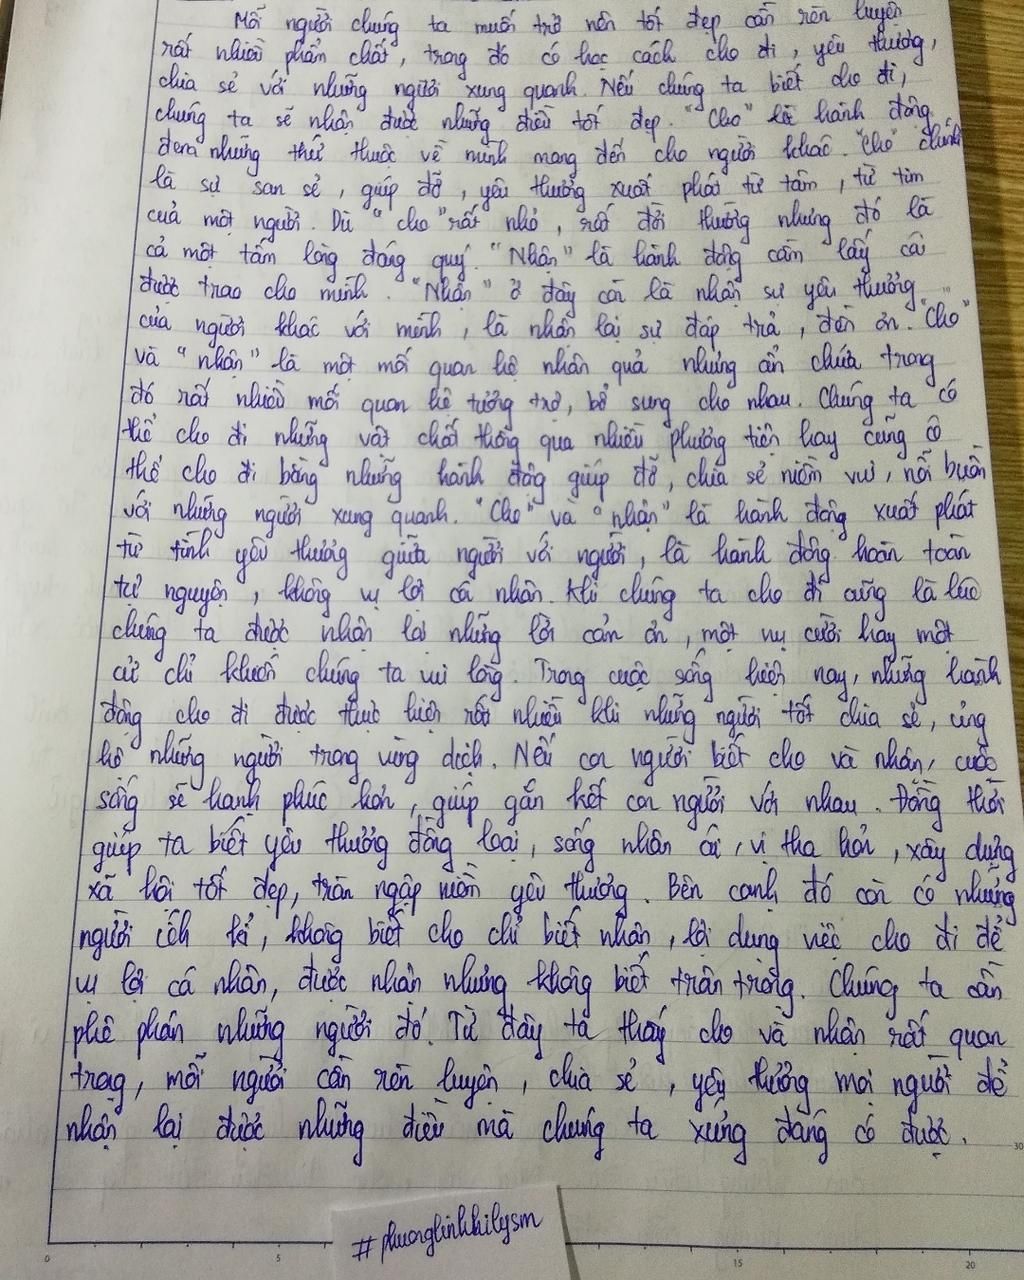 Mỗi người chúng ta muốn trở nên tốt đẹp cần rèn luyện
rất nhiều phẩm chất, trong đó có học cách cho đi, yêu thương,
chia sẻ với những người xung quanh. Nếu chúng ta biết cho đi,
chúng ta sẽ nhận được những điều tốt đẹp. "Cho" là hành động
đem những thứ thuộc về mình mang đến cho người khác. "Cho" chính
là sự san sẻ, giúp đỡ, yêu thương xuất phát từ tâm, từ tim
của một người. Dù "cho" rất nhỏ, rất đời thường nhưng đó là
cả một tấm lòng đáng quý. "Nhận" là hành động cầm lấy cái
được trao cho mình. "Nhận" ở đây còn là nhận sự yêu thương
của người khác với mình, là nhận lại sự đáp trả, đền ơn. "Cho"
và "nhận" là một mối quan hệ nhân quả nhưng ẩn chứa trong
đó rất nhiều mối quan hệ tương trợ, bổ sung cho nhau. Chúng ta có
thể cho đi những vật chất thông qua nhiều phương tiện hay cũng có
thể cho đi bằng những hành động giúp đỡ, chia sẻ niềm vui, nỗi buồn
với những người xung quanh. "Cho" và "nhận" là hành động xuất phát
từ tình yêu thương giữa người với người, là hành động hoàn toàn
tự nguyện, không vụ lợi cá nhân. Khi chúng ta cho đi cũng là lúc
chúng ta được nhận lại những lời cảm ơn, một nụ cười hay một
cử chỉ khiến chúng ta vui lòng. Trong cuộc sống hiện nay, những hành
động cho đi được thực hiện rất nhiều khi những người tốt chia sẻ, ủng
hộ những người trong vùng dịch. Nếu con người biết cho và nhận, cuộc
sống sẽ hạnh phúc hơn, giúp gắn kết con người với nhau. Đồng thời
giúp ta biết yêu thương đồng loại, sống nhân ái, vị tha hơn, xây dựng
xã hội tốt đẹp, tràn ngập niềm yêu thương. Bên cạnh đó còn có những
người ích kỉ, không biết cho chỉ biết nhận, lợi dụng việc cho đi để
vụ lợi cá nhân, được nhận nhưng không biết trân trọng. Chúng ta cần
phê phán những người đó. Từ đây ta thấy cho và nhận rất quan
trọng, mỗi người cần rèn luyện, chia sẻ, yêu thương mọi người để
nhận lại được những điều mà chúng ta xứng đáng có được.
30
#phuonglinhhilysm
0 5 15 20